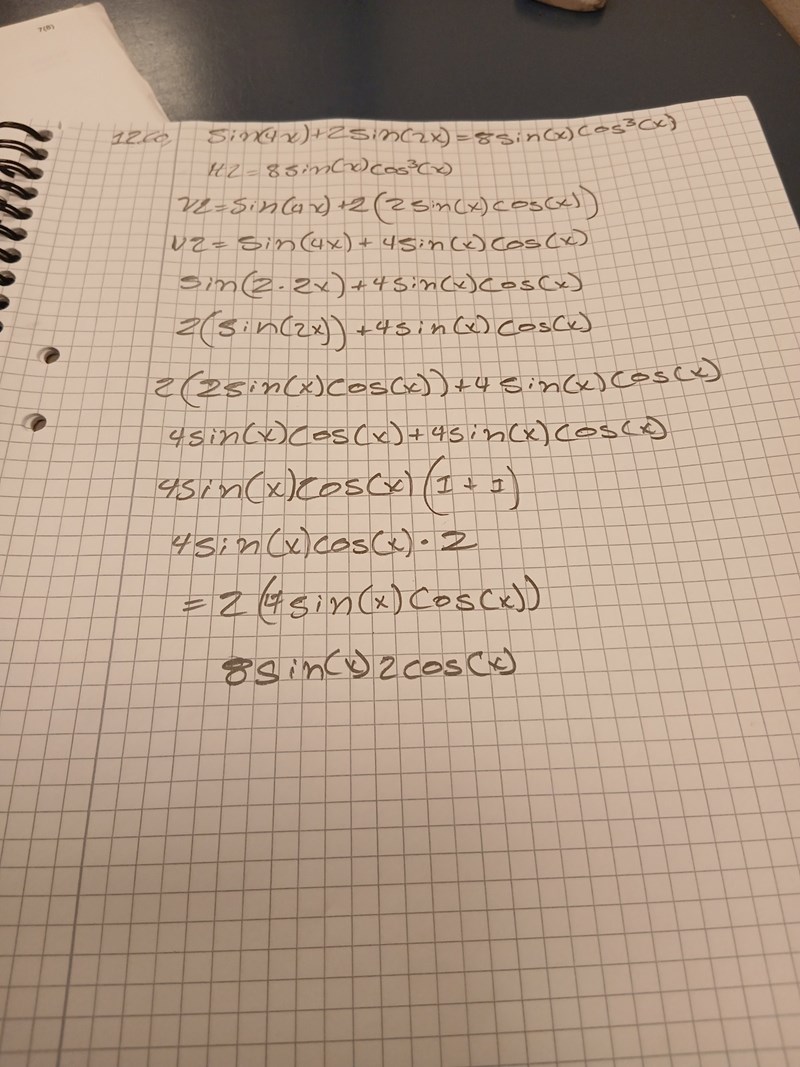 7(8)
sin(4x)+2sin(2x)=8sin(x)cos³(x)
HL=8sin(x)cos³(x)
VL=sin(4x)+2(2sin(x)cos(x))
VL=sin(4x)+4sin(x)cos(x)
sin(2·2x)+4sin(x)cos(x)
2(sin(2x))+4sin(x)cos(x)
2(2sin(x)cos(x))+4sin(x)cos(x)
4sin(x)cos(x)+4sin(x)cos(x)
4sin(x)cos(x)(1+1)
4sin(x)cos(x)·2
=2(4sin(x)cos(x))
8sin(x)2cos(x)